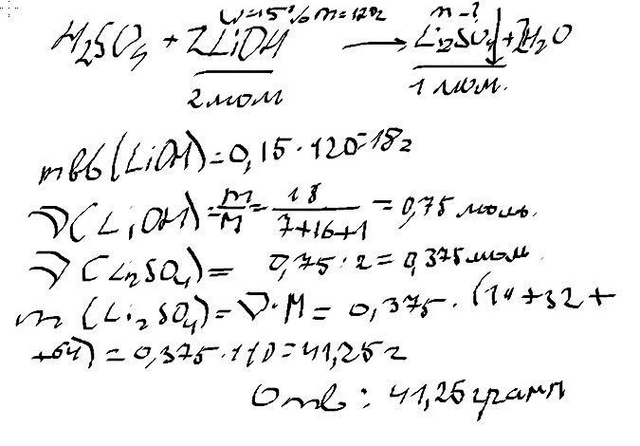 ω=15% m=120г m-?
H₂SO₄ + 2LiOH → Li₂SO₄↓ + 2H₂O
2 мол 1 мол.
mвв (LiOH) = 0,15 · 120 = 18г
ν(LiOH) = m/M = 18/7+16+1 = 0,75 моль.
ν(Li₂SO₄) = 0,75 : 2 = 0,375 мол.
m (Li₂SO₄) = ν · M = 0,375 · (14 + 32 +
+64) = 0,375 · 110 = 41,25 г
Отв : 41,25 грамм